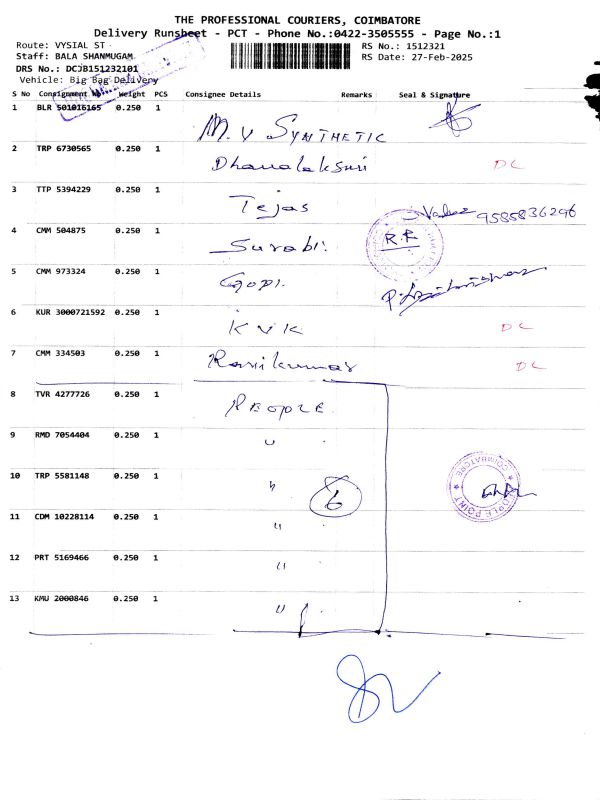 THE PROFESSIONAL COURIERS, COIMBATORE
Delivery Runsheet - PCT - Phone No.:0422-3505555 - Page No.:1
Route: VYSIAL ST
RS No.: 1512321
Staff: BALA SHANMUGAM
RS Date: 27-Feb-2025
DRS No.: DCJB151232101
Vehicle: Big Bag Delivery
S No Consignment No Weight PCS Consignee Details Remarks Seal & Signature
1 BLR 501016165 0.250 1 M.V SYNTHETIC
2 TRP 6730565 0.250 1 Dhanalakshmi DL
3 TTP 5394229 0.250 1 Tejas 9585836296
4 CMM 504875 0.250 1 Surabi. R.R
5 CMM 973324 0.250 1 Gopi.
6 KUR 3000721592 0.250 1 KVK DL
7 CMM 334503 0.250 1 Ravikumar DL
8 TVR 4277726 0.250 1 PEOPLE
9 RMD 7054404 0.250 1 "
10 TRP 5581148 0.250 1 " 6 PEOPLE POINT COIMBATORE
11 CDM 10228114 0.250 1 "
12 PRT 5169466 0.250 1 "
13 KMU 2000846 0.250 1 "